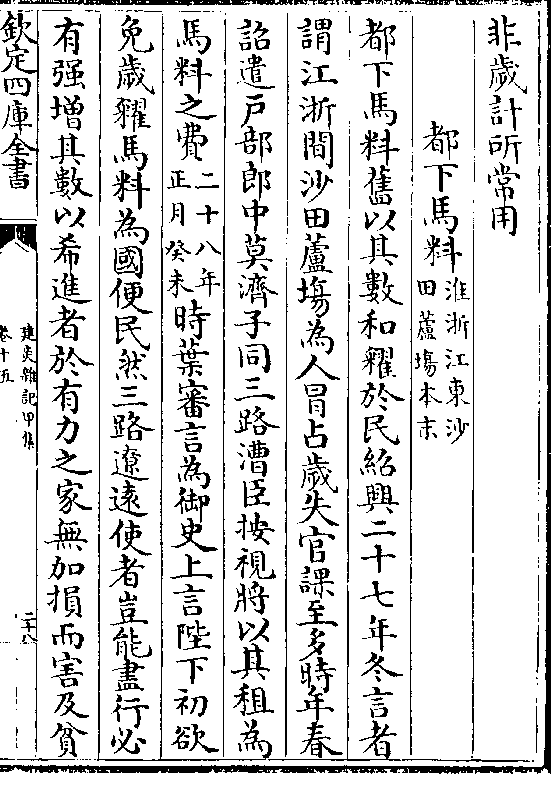 非歲計所常用
都下馬料淮浙江東沙田蘆塲本末
都下馬料舊以其數和糴於民紹興二十七年冬言者
謂江浙間沙田蘆塲為人冒占歲失官課至多時年春
詔遣戸部郎中莫濟子同三路漕臣按視將以其租為
馬料之費二十八年正月癸未時葉審言為御史上言陛下初欲
免歲糴馬料為國便民然三路遼遠使者豈能盡行必
有强增其數以希進者於有力之家無加損而害及貧
欽定四庫全書
建炎雜記甲集
卷十五
二十八